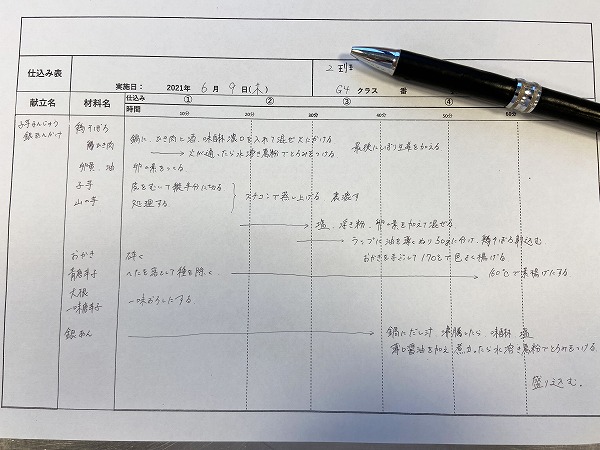 2班
仕込み表
実施日： 2021年 6月 9日(木)
G4 クラス 番
献立名 材料名 仕込み ① ② ③ ④ ⑤
時間 10分 20分 30分 40分 50分 60分
子芋まんじゅう 鶏そぼろ
銀あんかけ 鶏ひき肉 鍋に、ひき肉と酒、味醂、濃口を入れて混ぜ火にかける
→ 火が通ったら水溶き葛粉でとろみをつける 最後にしぼり生姜を加える
卵黄、油 卵の素をつくる
子芋 皮をむいて縦半分に切る
山の芋 処理する スチコンで蒸し上げる 裏漉す
塩、浮き粉、卵の素を加えて混ぜる
ラップに油を薄くぬり 50gに分け、鶏そぼろ包みこむ
おかき 砕く おかきをまぶして170℃で色よく揚げる
青唐辛子 へたを落として種を除く 160℃で素揚げにする
大根
一味唐辛子 一味おろしにする
銀あん 鍋にだし汁 沸騰したら 味醂 塩
薄口醤油を加え 煮立ったら水溶き葛粉でとろみをつける
盛りこむ。